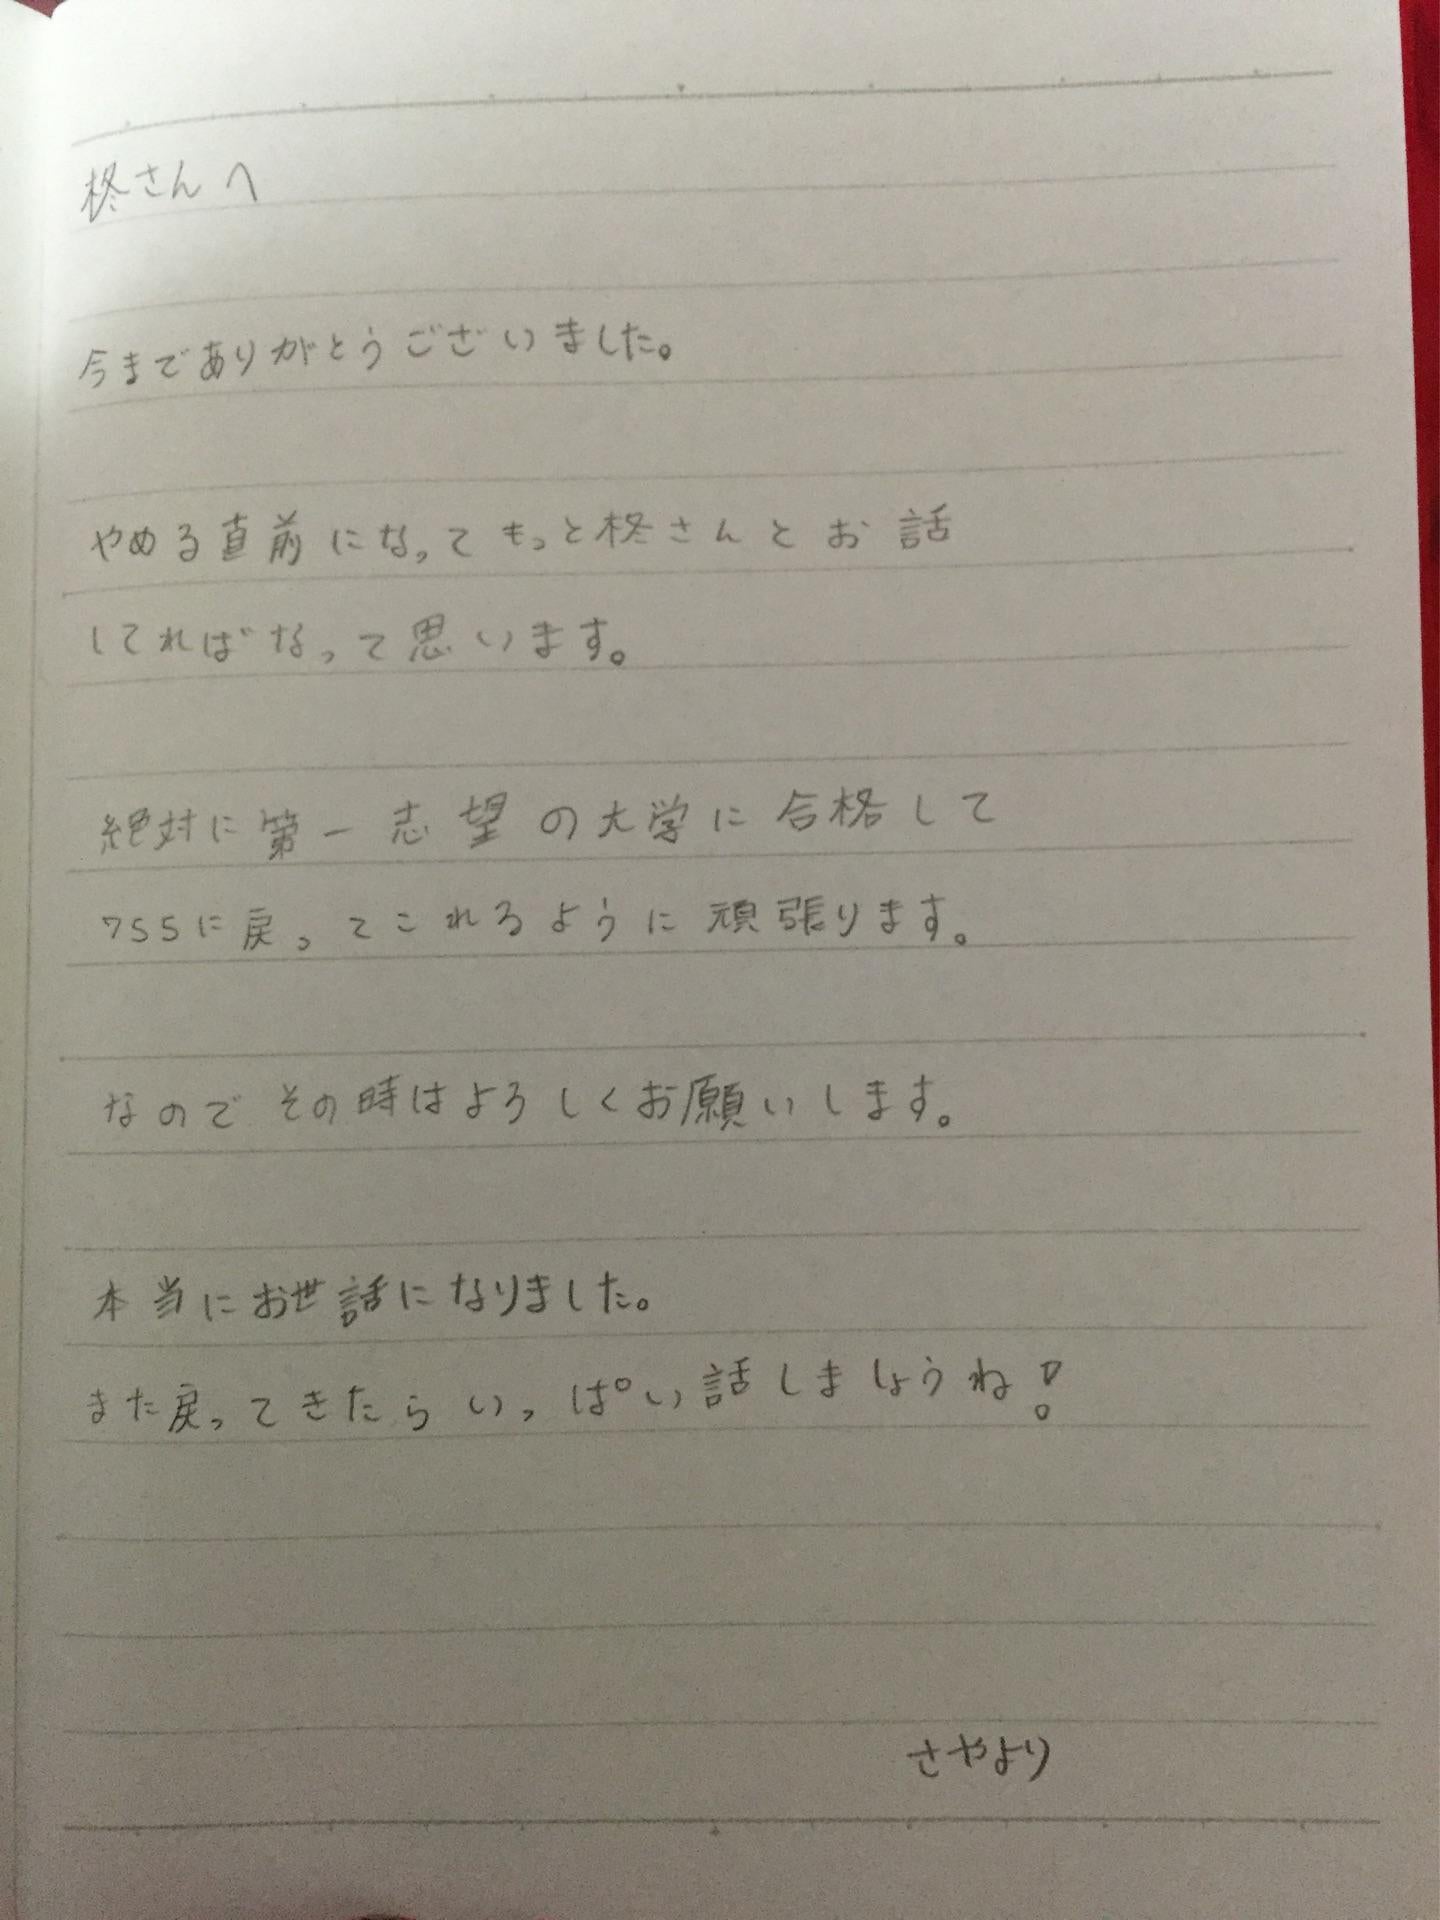 柊さんへ
今までありがとうございました。
やめる直前になってもっと柊さんとお話
してればなって思います。
絶対に第一志望の大学に合格して
755に戻ってこれるように頑張ります。
なのでその時はよろしくお願いします。
本当にお世話になりました。
また戻ってきたらいっぱい話しましょうね!
さやより